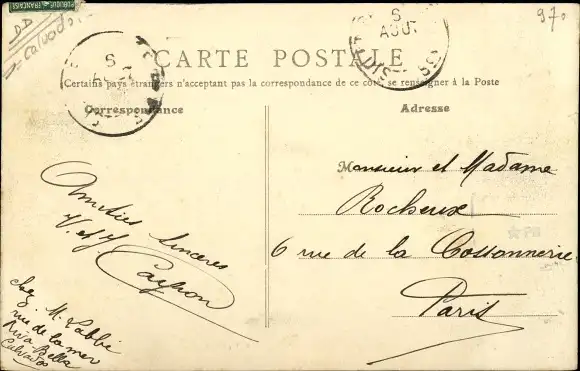 RÉPUBLIQUE FRANÇAISE
DD
Calvados
970
CARTE POSTALE
Certains pays étrangers n'acceptent pas la correspondance de ce côté, se renseigner à la Poste
Correspondance
Adresse
5
AOUT
5
AOUT
Amitiés sincères
V. et J
Cayron
chez M. Labbé
rue de la mer
Riva Bella
Calvados
Monsieur et Madame
Rocheux
6 rue de la Cossonnerie
Paris